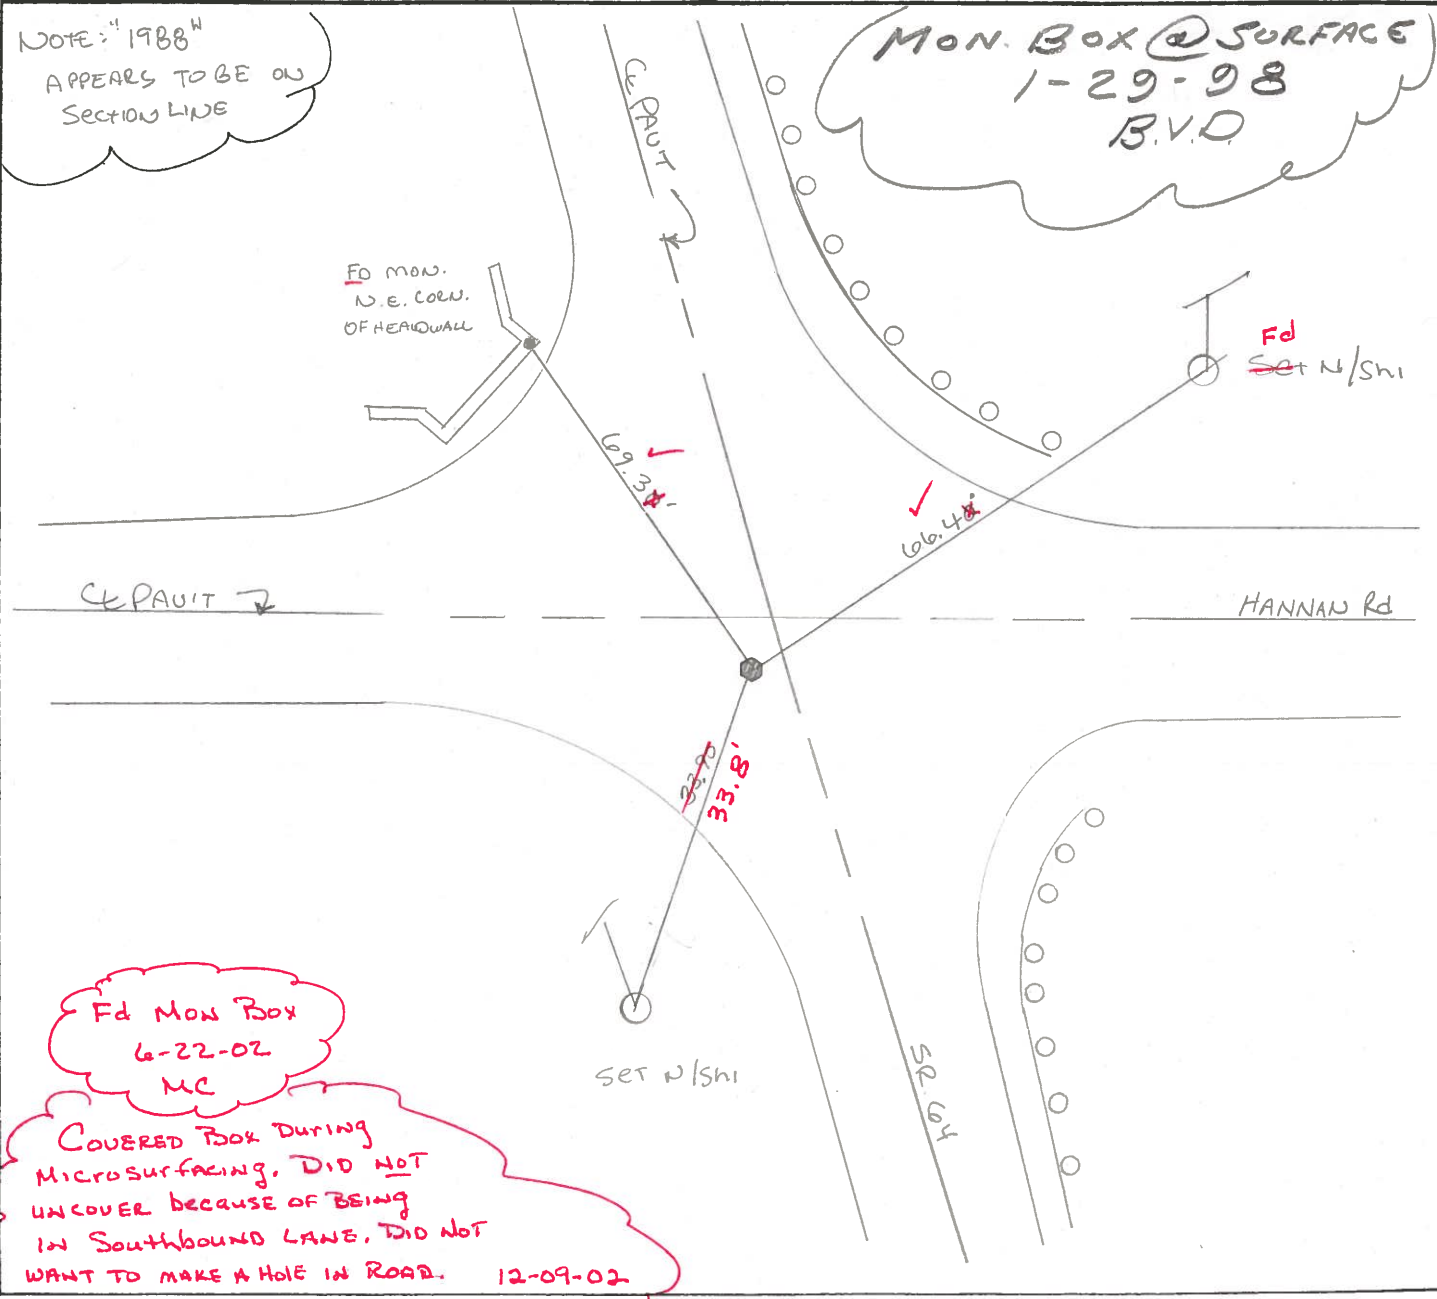 NOTE: "1988"
APPEARS TO BE ON
SECTION LINE
MON. BOX @ SURFACE
1-29-98
B.V.D.
℄ PAV'T
FD MON.
N.E. CORN.
OF HEADWALL
Fd
Set N/Shi
69.3
66.4
℄ PAV'T
HANNAN Rd
33.90
33.8'
Fd Mon Box
6-22-02
MC
SET N/Shi
SR. 64
COVERED BOX DURING
MICROSURFACING. DID NOT
UNCOVER because OF BEING
IN SOUTHBOUND LANE. DID NOT
WANT TO MAKE A HOLE IN ROAD. 12-09-02